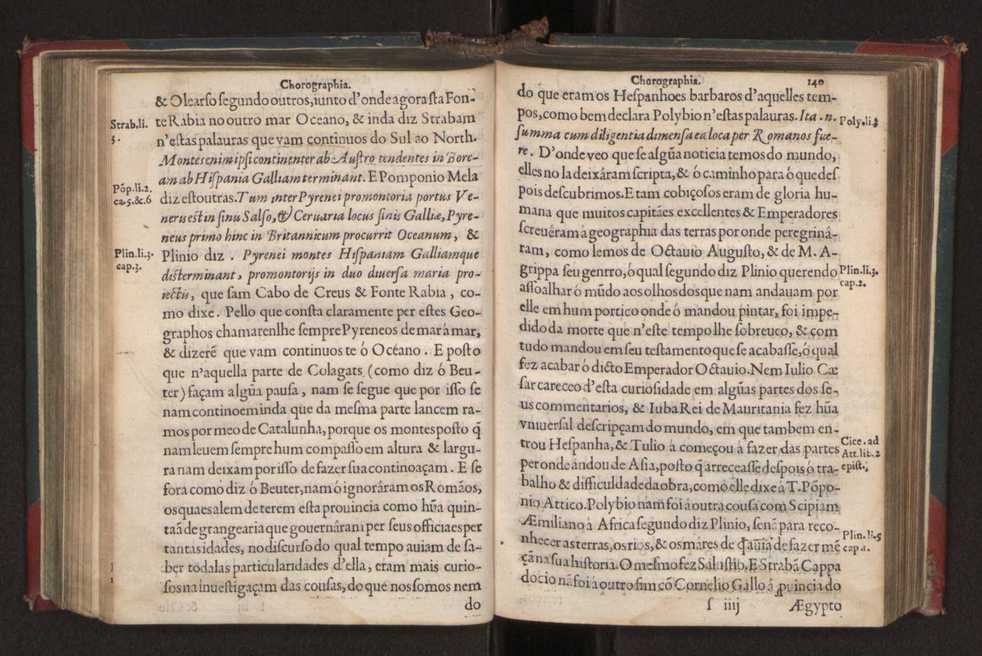 Chorographia.
& Olearso segundo outros, iunto d'onde agora sta Fon-
Strab.li.
5.
te Rabia no outro mar Oceano, & inda diz Strabam
n'estas palauras que vam continuos do Sul ao North.
Montes enim ipsi continenter ab Austro tendentes in Bore-
am ab Hispania Galliam terminant. E Pomponio Mela
Põp.li.2.
ca.5.&.6
diz estoutras. Tum inter Pyrenei promontoria portus Ve-
neris est in sinu Salso, & Ceruaria locus finis Galliæ, Pyre-
neus primo hinc in Britannicum procurrit Oceanum, &
Plin.li.3.
cap.3.
Plinio diz . Pyrenei montes Hispaniam Galliamque
disterminant, promontorijs in duo diuersa maria pro-
iectis, que sam Cabo de Creus & Fonte Rabia , co-
mo dixe. Pello que consta claramente per estes Geo-
graphos chamarenlhe sempre Pyreneos de mar à mar,
& dizerẽ que vam continuos te ó Océano . E posto
que n'aquella parte de Colagats (como diz ó Beu-
ter) façam algũa pausa , nam se segue que por isso se
nam continoem inda que da mesma parte lancem ra-
mos por meo de Catalunha, porque os montes posto q̃
nam leuem sempre hum compasso em altura & largu-
ra nam deixam por isso de fazer sua continoaçam. E se
fora como diz ó Beuter, nam ó ignorâram os Romãos,
os quaes alem de terem esta prouincia como hũa quin-
taã de grangearia que gouernâram per seus officiaes per
tantas idades, no discurso do qual tempo auiam de sa-
ber todalas particularidades d'ella, eram mais curio-
sos na inuestigaçam das cousas, do que nos somos nem
do
Chorographia.
140
do que eram os Hespanhoes barbaros d'aquelles tem-
pos, como bem declara Polybio n'estas palauras. Ita .n.
Poly.li.3
summa cum diligentia dimensa ea loca per Romanos fue-
re. D'onde veo que se algũa noticia temos do mundo,
elles no la deixâram scripta, & ó caminho para ó que des
pois descubrimos. E tam cobiçosos eram de gloria hu-
mana que muitos capitães excellentes & Emperadores
screuêram à geographia das terras por onde peregrinâ-
ram, como lemos de Octauio Augusto, & de M. A-
grippa seu genrro, ó qual segundo diz Plinio querendo
Plin.li.3.
cap.2.
assoalhar ó mũdo aos olhos dos que nam andauam por
elle em hum portico onde ó mandou pintar, foi impe-
dido da morte que n'este tempo lhe sobreueo, & com
tudo mandou em seu testamento que se acabasse, ó qual
fez acabar ó dicto Emperador Octauio. Nem Iulio Cæ
sar careceo d'esta curiosidade em algũas partes dos se-
us commentarios, & Iuba Rei de Mauritania fez hũa
vniuersal descripçam do mundo, em que tambem en-
trou Hespanha, & Tulio à começou à fazer das partes
Cice.ad
Att.lit.2
epist.
per onde andou de Asia, posto q̃ arreceasse despois ó tra-
balho & difficuldade da obra, como elle dixe à T. Põpo-
nio Attico. Polybio nam foi à outra cousa com Scipiam
Æmiliano à Africa segundo diz Plinio, senã para reco-
Plin.li.5
cap.1.
nhecer as terras, os rios, & os mares de q̃ auia de fazer mẽ
çã na sua historia. O mesmo fez Salustio. E Strabã Cappa
docio nã foi à outro fim cõ Cornelio Gallo á prouincia do
s iiij
Ægypto